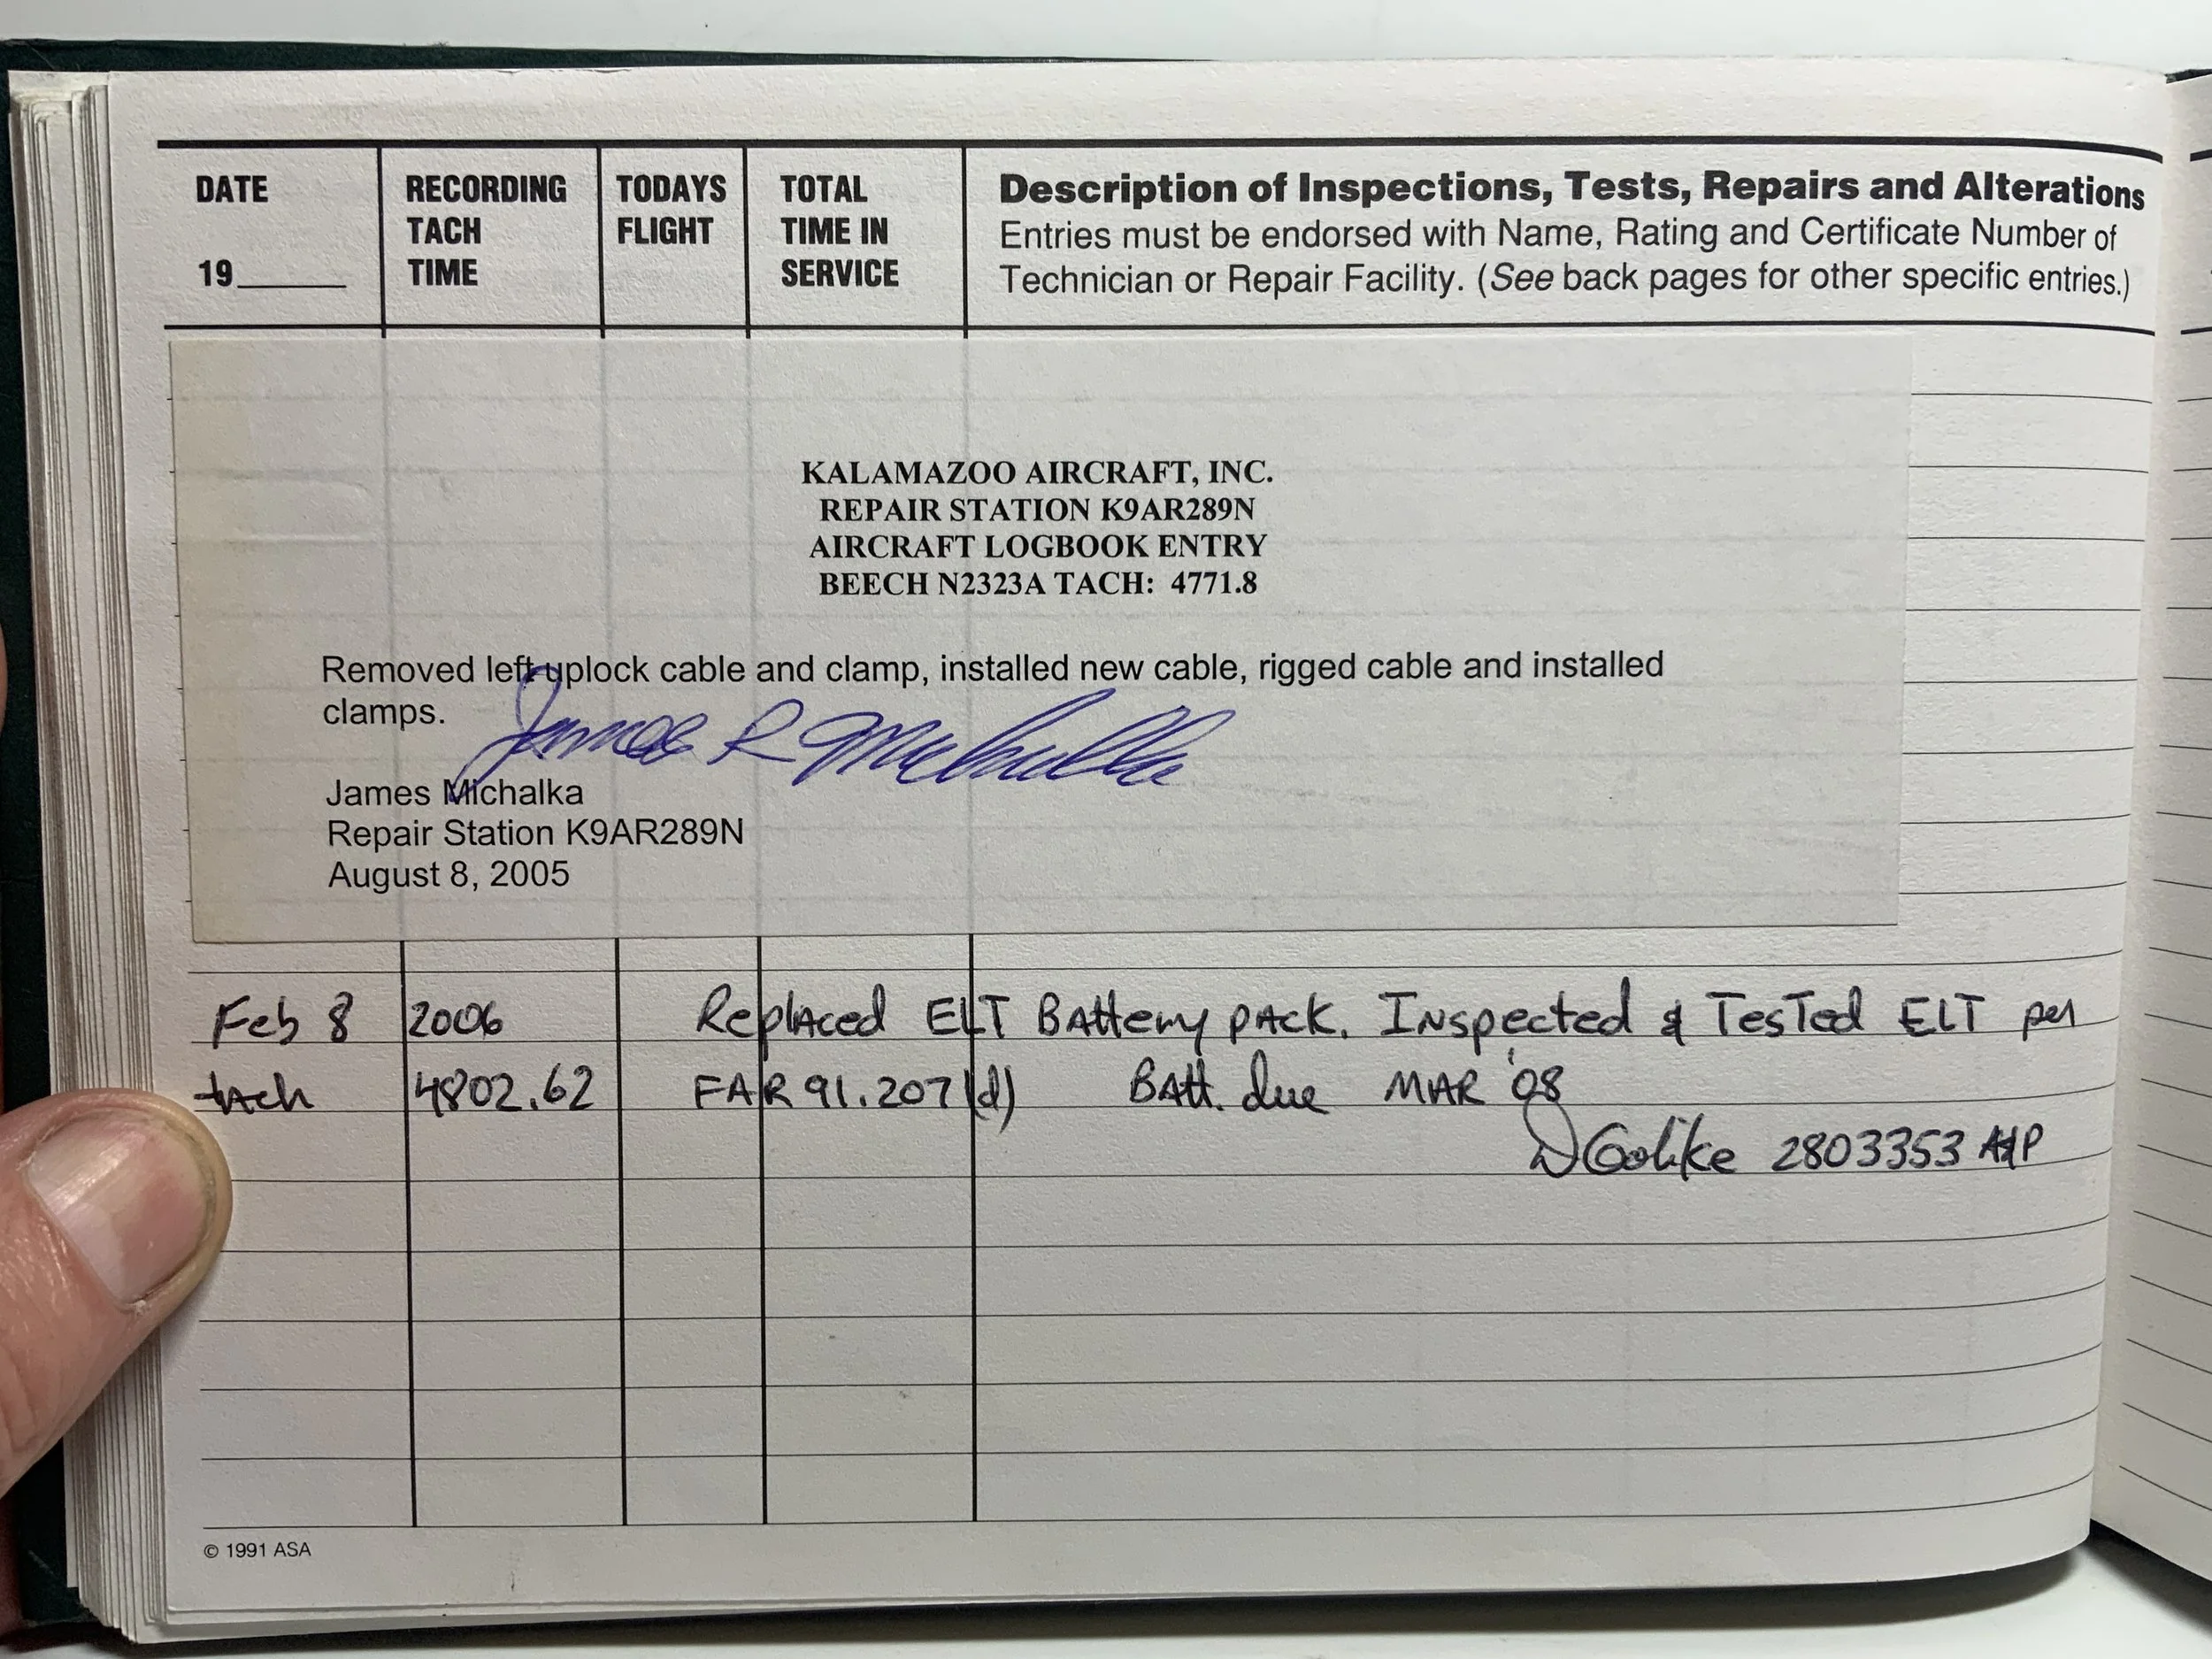 DATE
19
RECORDING
TACH
TIME
TODAYS
FLIGHT
TOTAL
TIME IN
SERVICE
Description of Inspections, Tests, Repairs and Alterations
Entries must be endorsed with Name, Rating and Certificate Number of
Technician or Repair Facility. (See back pages for other specific entries.)
KALAMAZOO AIRCRAFT, INC.
REPAIR STATION K9AR289N
AIRCRAFT LOGBOOK ENTRY
BEECH N2323A TACH: 4771.8
Removed left uplock cable and clamp, installed new cable, rigged cable and installed
clamps.
James R Michalka
James Michalka
Repair Station K9AR289N
August 8, 2005
Feb 8 2006 Replaced ELT Battery pack. Inspected & Tested ELT per
tach 4802.62 FAR 91.207(d) Batt. due MAR '08
D Golike 2803353 A&P
© 1991 ASA